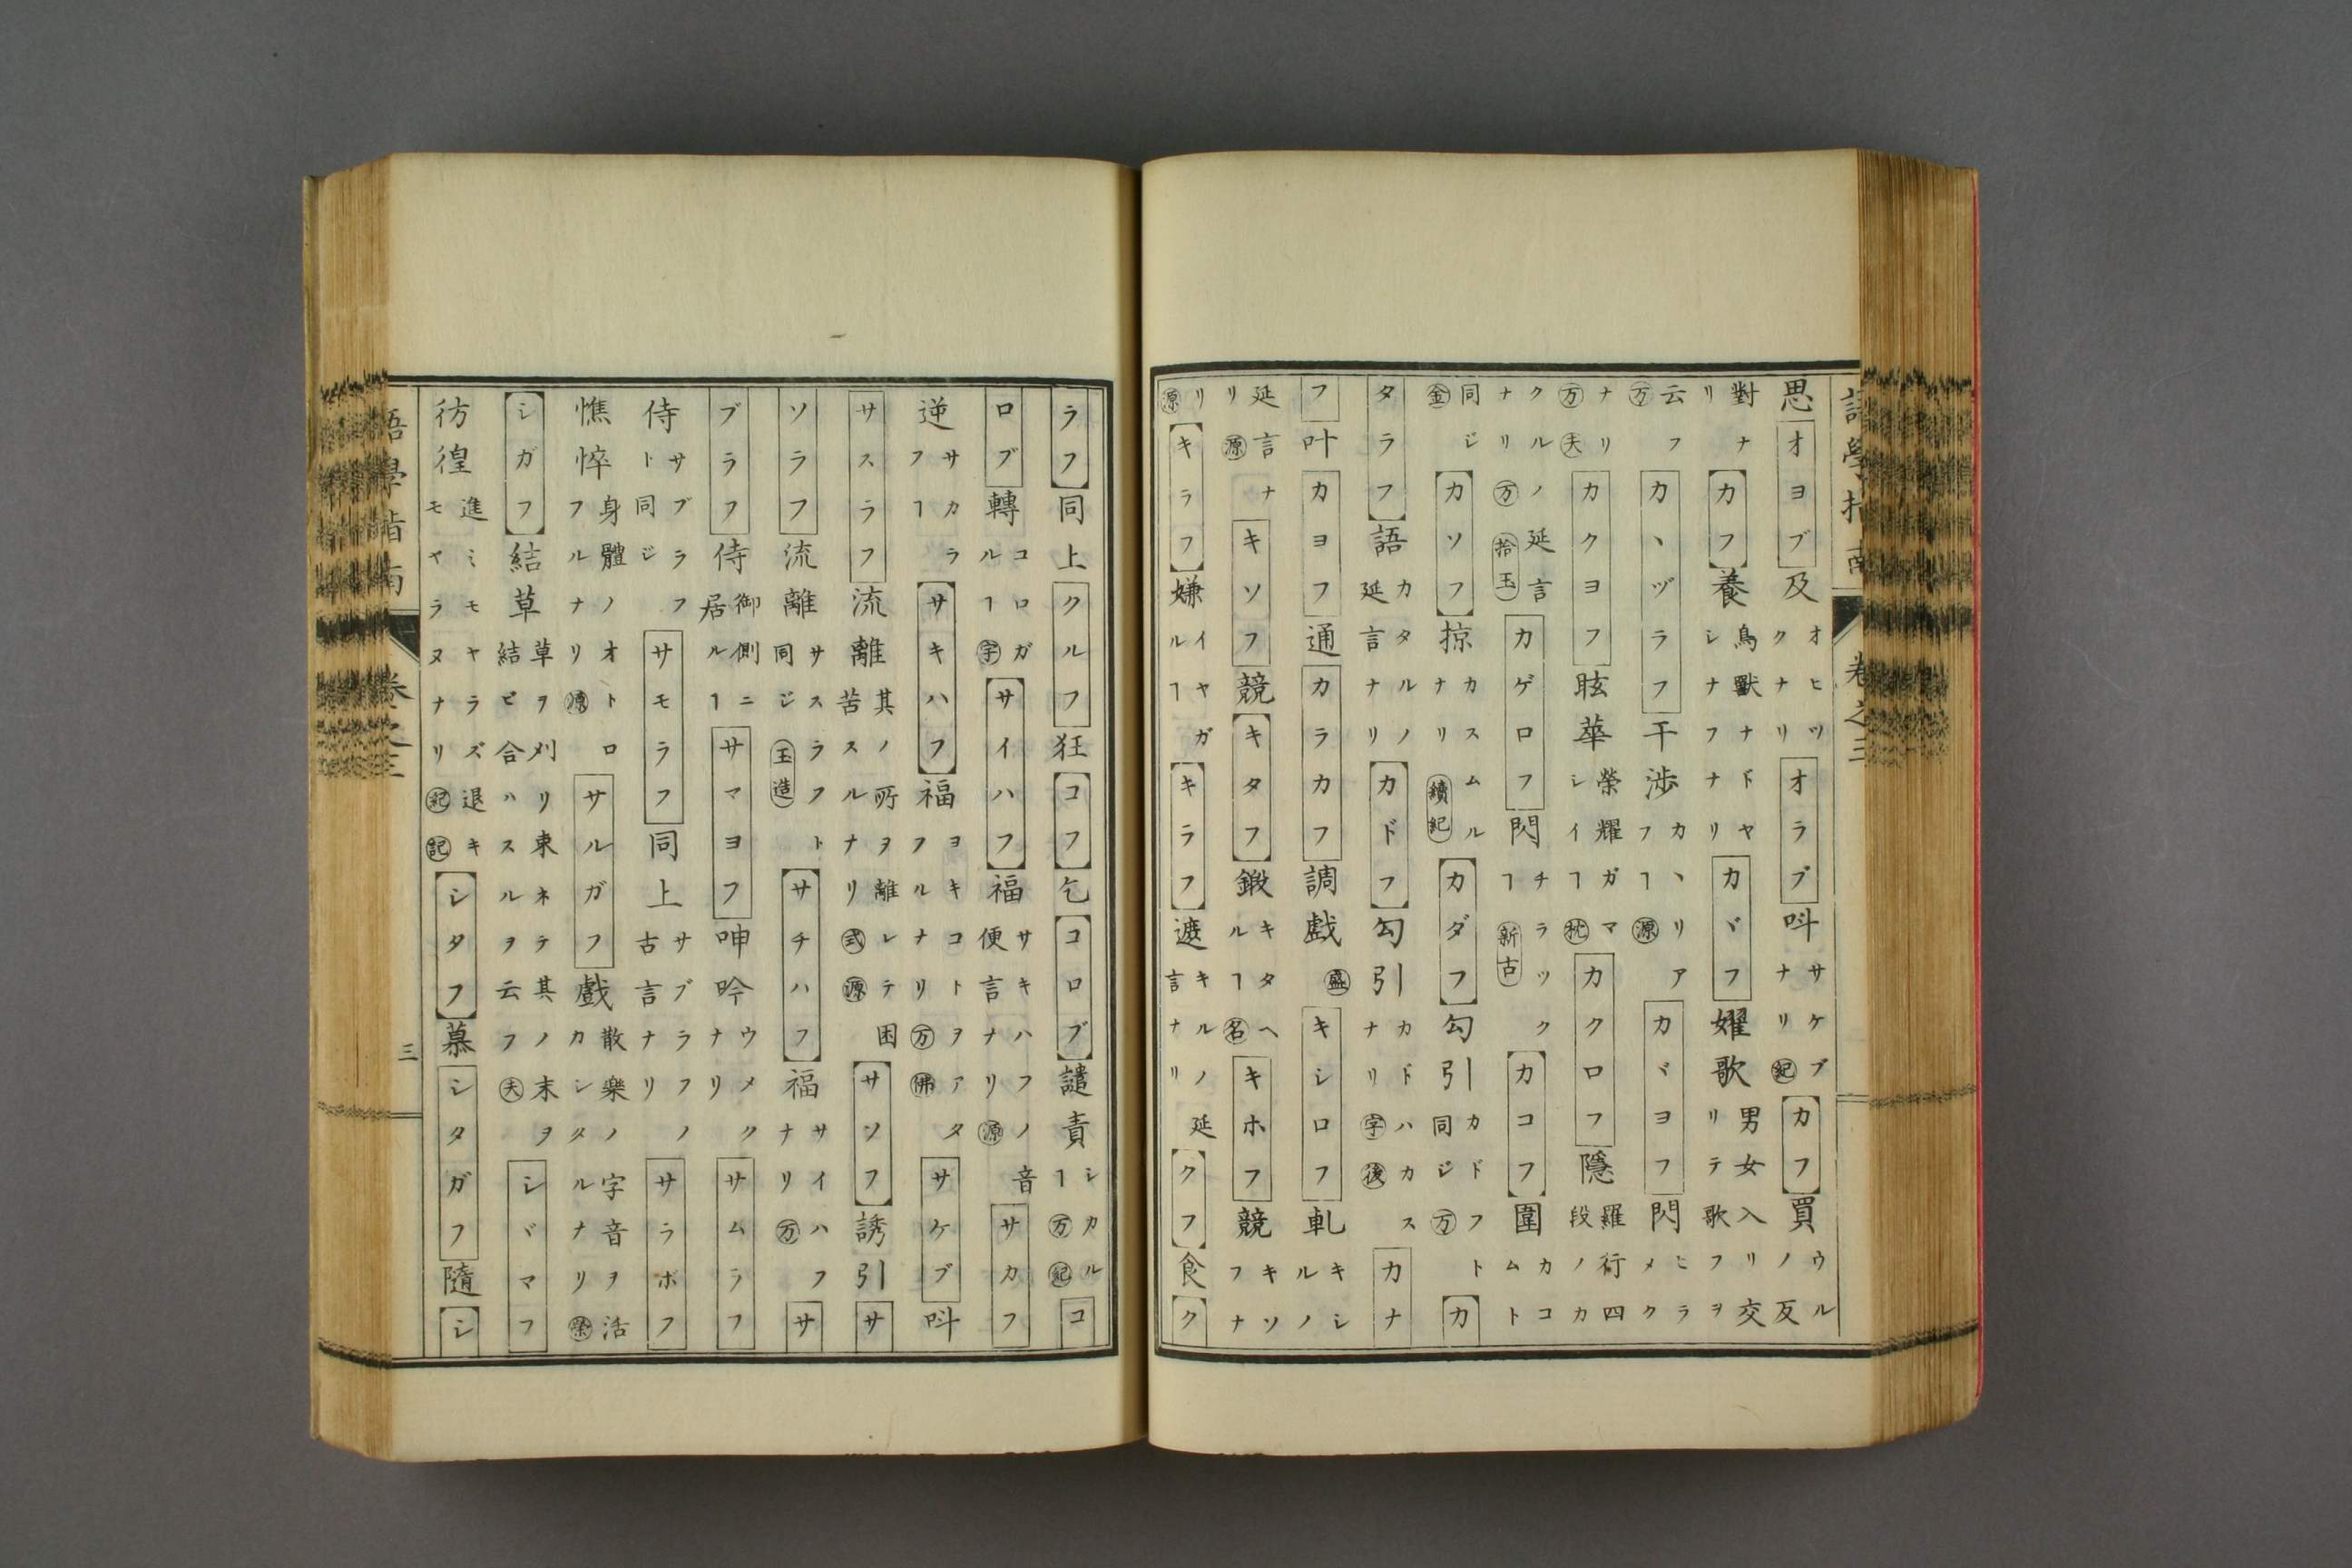 語學指南 卷之三
思オヨブ及オヒツクナリオラブ叫サケブナリ紀カフ買ウルノ反
對ナリカフ養鳥獸ナドヤシナフナリカヾフ嬥歌男女入リ交リテ歌フヲ
云フ万カヽヅラフ干渉カヽリアフヿ源カヾヨフ閃ヒラメク
ナリ万夫カクヨフ眩華榮耀ガマシイヿ枕カクロフ隱羅行四段ノカ
クルノ延言ナリ万拾玉カゲロフ閃チラツクヿ新古カコフ圍カコムト
同ジ金カソフ掠カスムルナリ續紀カダフ勾引カドフト同ジ万カ
タラフ語カタルノ延言ナリカドフ勾引カドハカスナリ字後カナ
フ叶カヨフ通カラカフ調戲盛キシロフ軋キシルノ
延言ナリ源キソフ競キタフ鍛キタヘルヿ名キホフ競キソフナ
リ源キラフ嫌イヤガルヿキラフ遮キルノ延言ナリクフ食ク
ラフ同上クルフ狂コフ乞コロブ譴責シカルヿ万紀コ
ロブ轉コロガルヿ字サイハフ福サキハフノ音便言ナリ源サカフ
逆サカラフヿサキハフ福ヨキコトヲアタフルナリ万佛サケブ叫
サスラフ流離其ノ所ヲ離レテ困苦スルナリ式源サソフ誘引サ
ソラフ流離サスラフト同ジ玉造サチハフ福サイハフナリ万サ
ブラフ侍御側ニ居ルヿサマヨフ呻吟ウメクナリサムラフ
侍サブラフト同ジサモラフ同上サブラフノ古言ナリサラボフ
憔悴身體ノオトロフルナリ源サルガフ戲散樂ノ字音ヲ活カシタルナリ榮
シガフ結草草ヲ刈リ束ネテ其ノ末ヲ結ビ合ハスルヲ云フ夫シヾマフ
彷徨進ミモヤラズ退キモヤラヌナリ紀記シタフ慕シタガフ隨シ
語學指南 卷之三 三